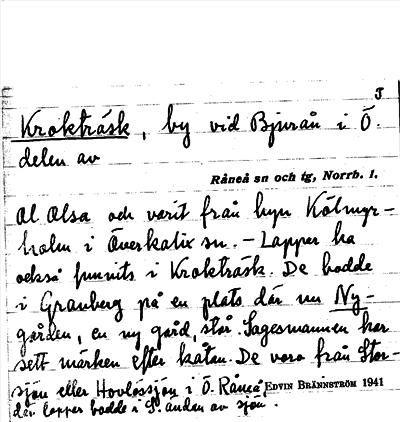 J
Krokträsk, by vid Bjurån i Ö.
delen av
Råneå sn och tg, Norrb. l.
al Alsa och varit från byn Kölmyr-
holm i Överkalix sn. – Lapper ha
också funnits i Krokträsk. De bodde
i Granberg på en plats där nu Ny-
gården, en ny gård, står. Sagesmannen har
sett märken efter kåtan. De voro från Stor-
sjön eller Hovlössjön i Ö. Råneå,
där lapper bodde i S. ändan av sjön.
EDVIN BRÄNNSTRÖM 1941